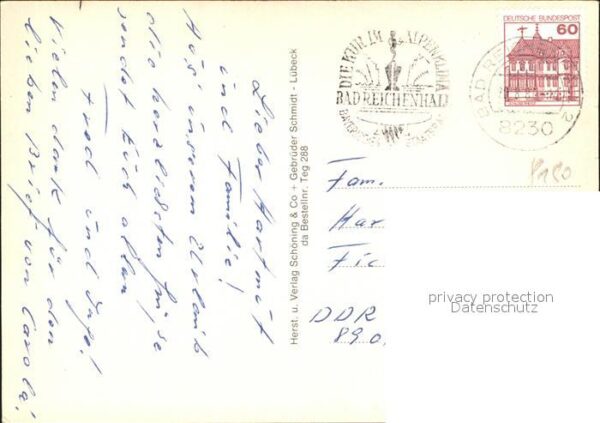 Lieber Hartmut
und Familie!
Aus unserem Urlaub
die herzlichsten Grüsse
sendet Euch allen
Fred und Inge!
Vielen dank für den
lieben Brief von Carola!
Herst. u. Verlag Schöning & Co + Gebrüder Schmidt - Lübeck
da Bestellnr. Teg 288
DIE KUR IM ALPENKLIMA
BAD REICHENHALL
DEUTSCHE BUNDESPOST
60
BAD REICHENHALL 2
8230
Fam.
Har
Fic
DDR
890
privacy protection
Datenschutz